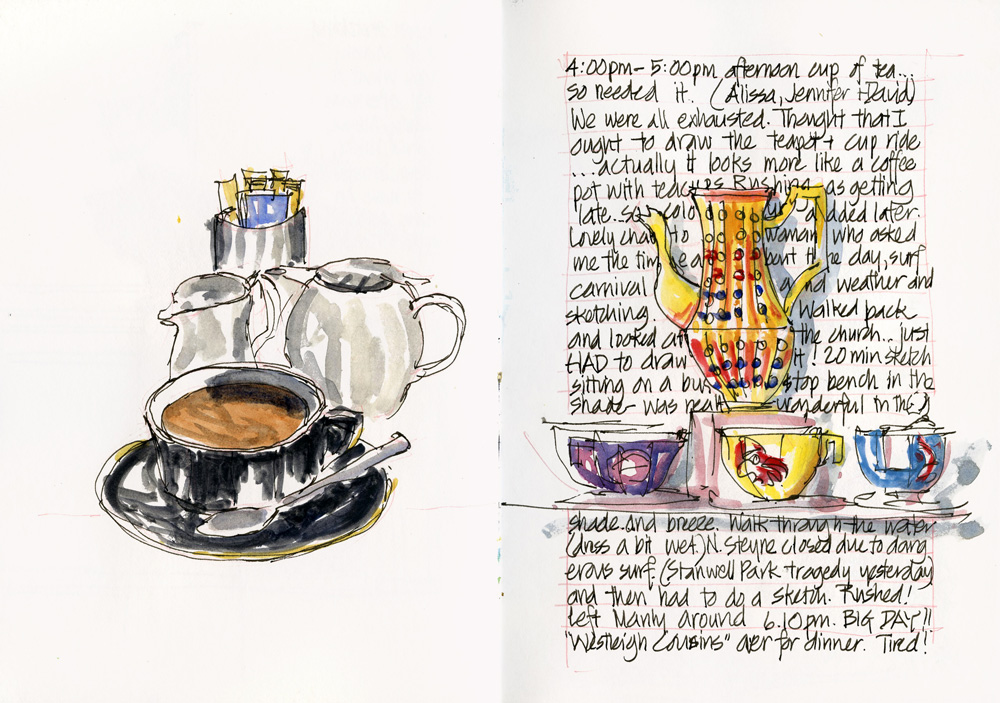 4:00pm - 5:00pm afternoon cup of tea...
so needed it. (Alissa, Jennifer + David)
We were all exhausted. Thought that I
ought to draw the teapot + cup ride
...actually it looks more like a coffee
pot with teacups. Rushing as getting
late...so colo added later.
Lovely chat to woman who asked
me the time the day, surf
carnival and weather and
sketching. Walked back
and looked at the church... just
HAD to draw it! 20 min sketch
sitting on a bus stop bench in the
shade was really wonderful in the
shade and breeze. Walk through the water
(dress a bit wet.) N. Steyne closed due to dang
erous surf. (Stanwell Park tragedy yesterday)
and then had to do a sketch. Rushed!
Left Manly around 6.10pm. BIG DAY!!
"Westleigh Cousins" over for dinner. Tired!